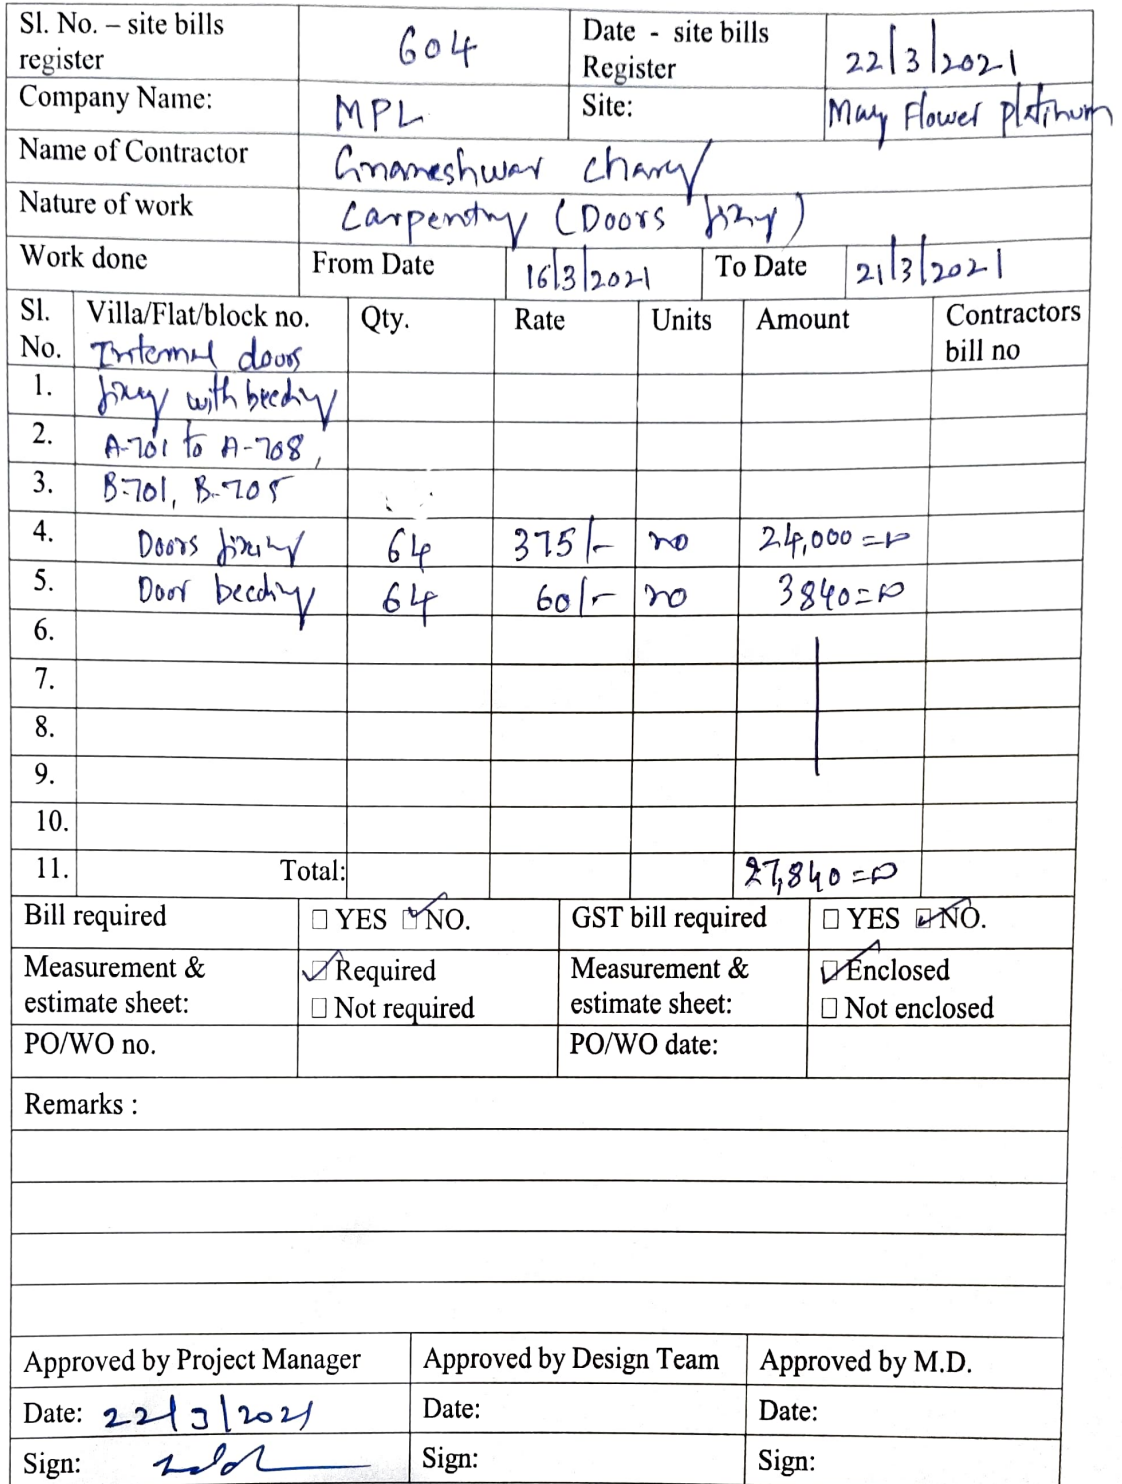 Sl. No. – site bills register 604 Date - site bills Register 22/3/2021
Company Name: MPL Site: May Flower platinum
Name of Contractor Gnaneshwar chary
Nature of work Carpentry (Doors fixing)
Work done From Date 16/3/2021 To Date 21/3/2021
Sl. No. Villa/Flat/block no. Qty. Rate Units Amount Contractors bill no
Internal doors
1. fixing with beeding
2. A-701 to A-708,
3. B-701, B-705
4. Doors fixing 64 375/- no 24,000=00
5. Door beeding 64 60/- no 3840=00
6.
7.
8.
9.
10.
11. Total: 27,840=00
Bill required ☐ YES ☑ NO. GST bill required ☐ YES ☑ NO.
Measurement & estimate sheet: ☑ Required Measurement & estimate sheet: ☑ Enclosed
☐ Not required ☐ Not enclosed
PO/WO no. PO/WO date:
Remarks :
Approved by Project Manager Approved by Design Team Approved by M.D.
Date: 22/3/2021 Date: Date:
Sign: Sign: Sign: